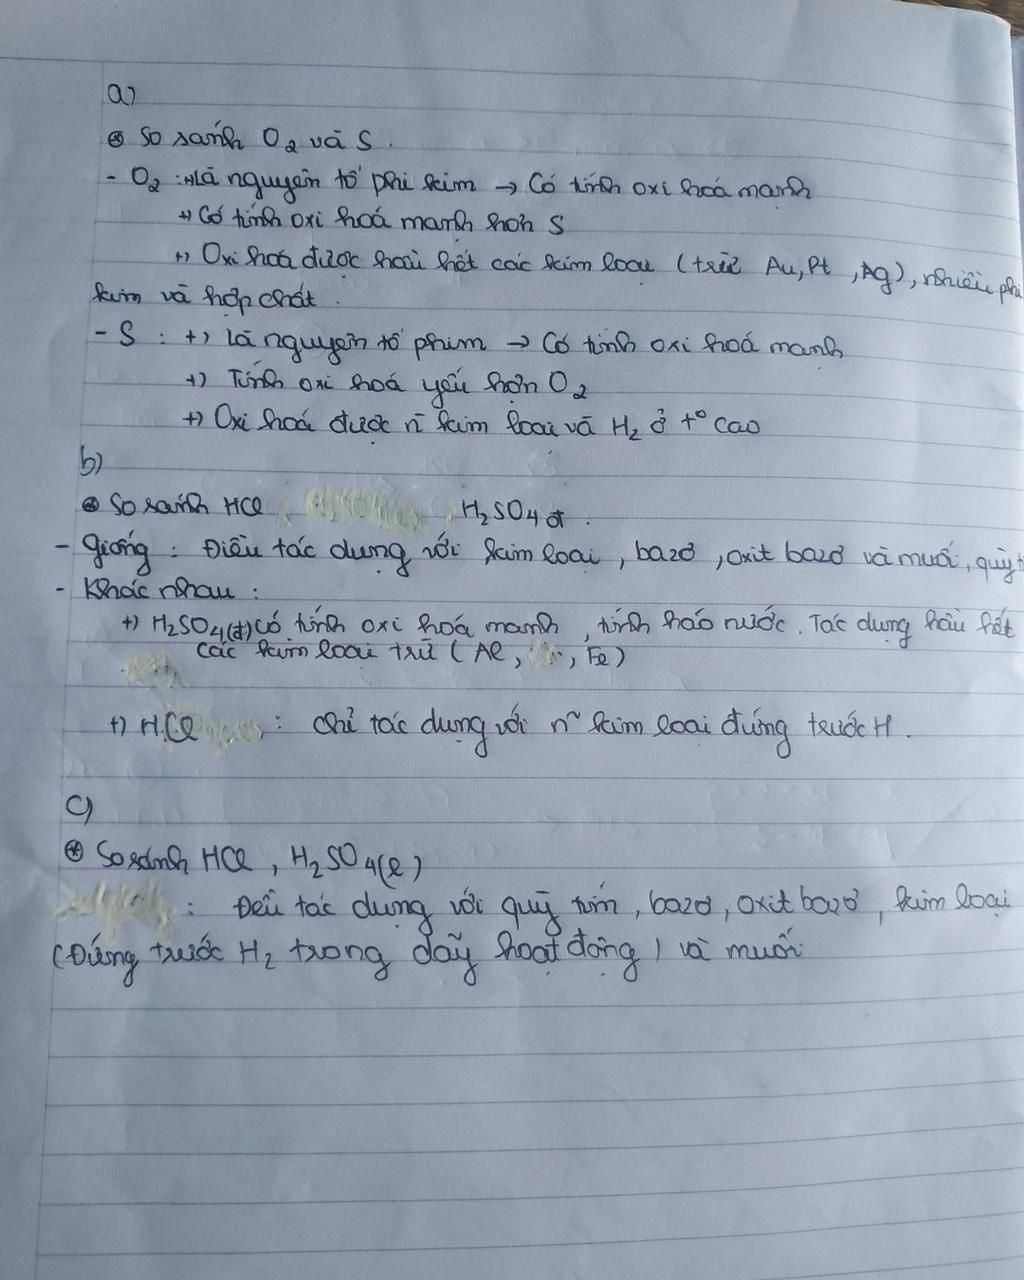 a)
⊛ So sánh O2 và S.
- O2 : +) Là nguyên tố phi kim → Có tính oxi hoá mạnh
+) Có tính oxi hoá mạnh hơn S
+) Oxi hoá được hầu hết các kim loại (trừ Au, Pt, Ag), nhiều phi
kim và hợp chất.
- S : +) là nguyên tố phim → Có tính oxi hoá mạnh
+) Tính oxi hoá yếu hơn O2
+) Oxi hoá được n~ kim loại và H2 ở t° cao
b)
⊛ So sánh HCl H2SO4 đ.
- Giống : Điều tác dụng với kim loại, bazơ, oxit bazơ và muối, quỳ
- Khác nhau :
+) H2SO4(đ) có tính oxi hoá mạnh, tính háo nước. Tác dụng hầu hết
các kim loại trừ (Al, , Fe)
+) HCl : chỉ tác dụng với n~ kim loại đứng trước H.
c)
⊛ So sánh HCl, H2SO4(l)
: Đều tác dụng với quỳ tím, bazơ, oxit bazơ, kim loại
(Đứng trước H2 trong dãy hoạt động) và muối